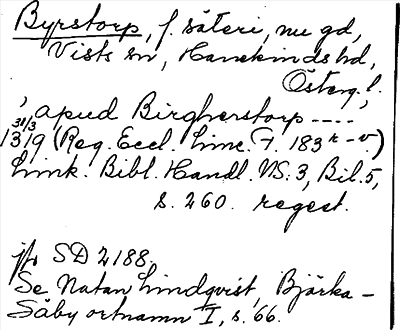 Byrstorp, f. säteri, nu gd,
Vists sn, Hanekinds hd,
Österg. l.
, apud Birgherstorp ----
31/3
1319 (Reg. Eccl. Linc. F. 183 r-v.)
Link. Bibl. Handl. NS. 3, Bil. 5,
s. 260. regest.
jfr SD 2188,
Se Natan Lindqvist, Bjärka-
Säby ortnamn I, s. 66.